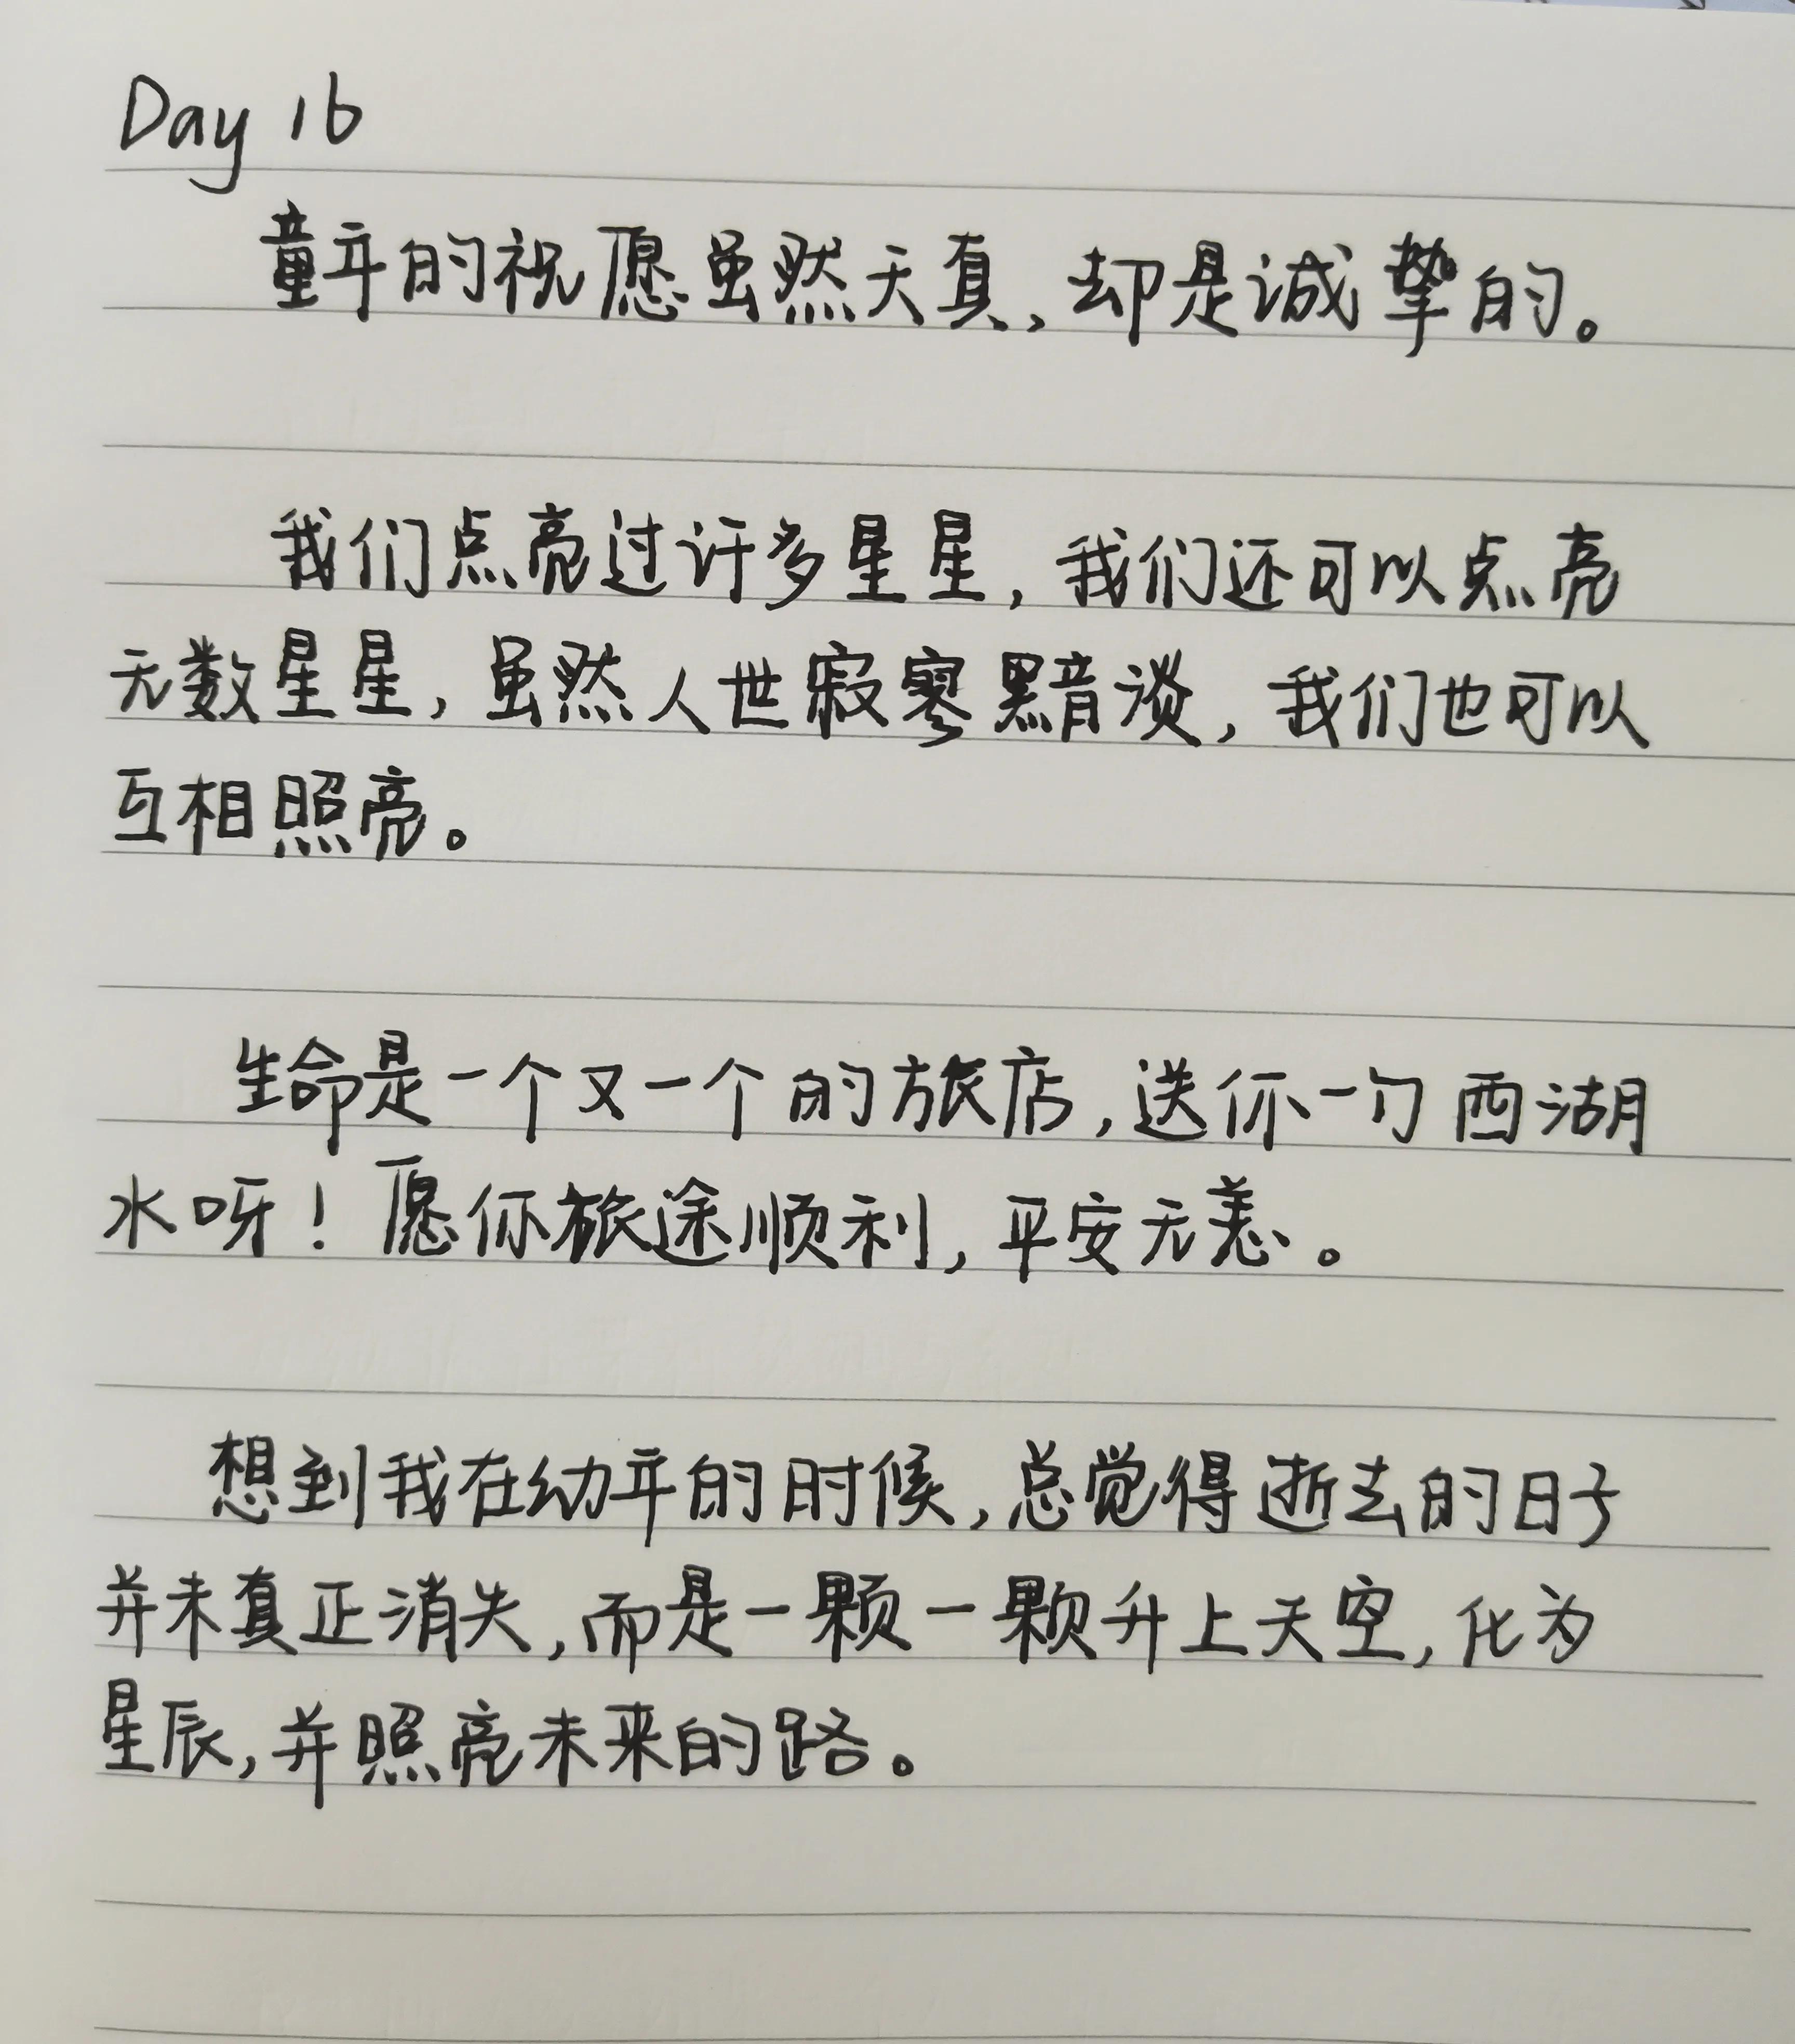 Day 16
童年的祝愿虽然天真，却是诚挚的。
我们点亮过许多星星，我们还可以点亮
无数星星，虽然人世寂寥黯淡，我们也可以
互相照亮。
生命是一个又一个的旅店，送你一勺西湖
水呀！愿你旅途顺利，平安无恙。
想到我在幼年的时候，总觉得逝去的日子
并未真正消失，而是一颗一颗升上天空，化为
星辰，并照亮未来的路。